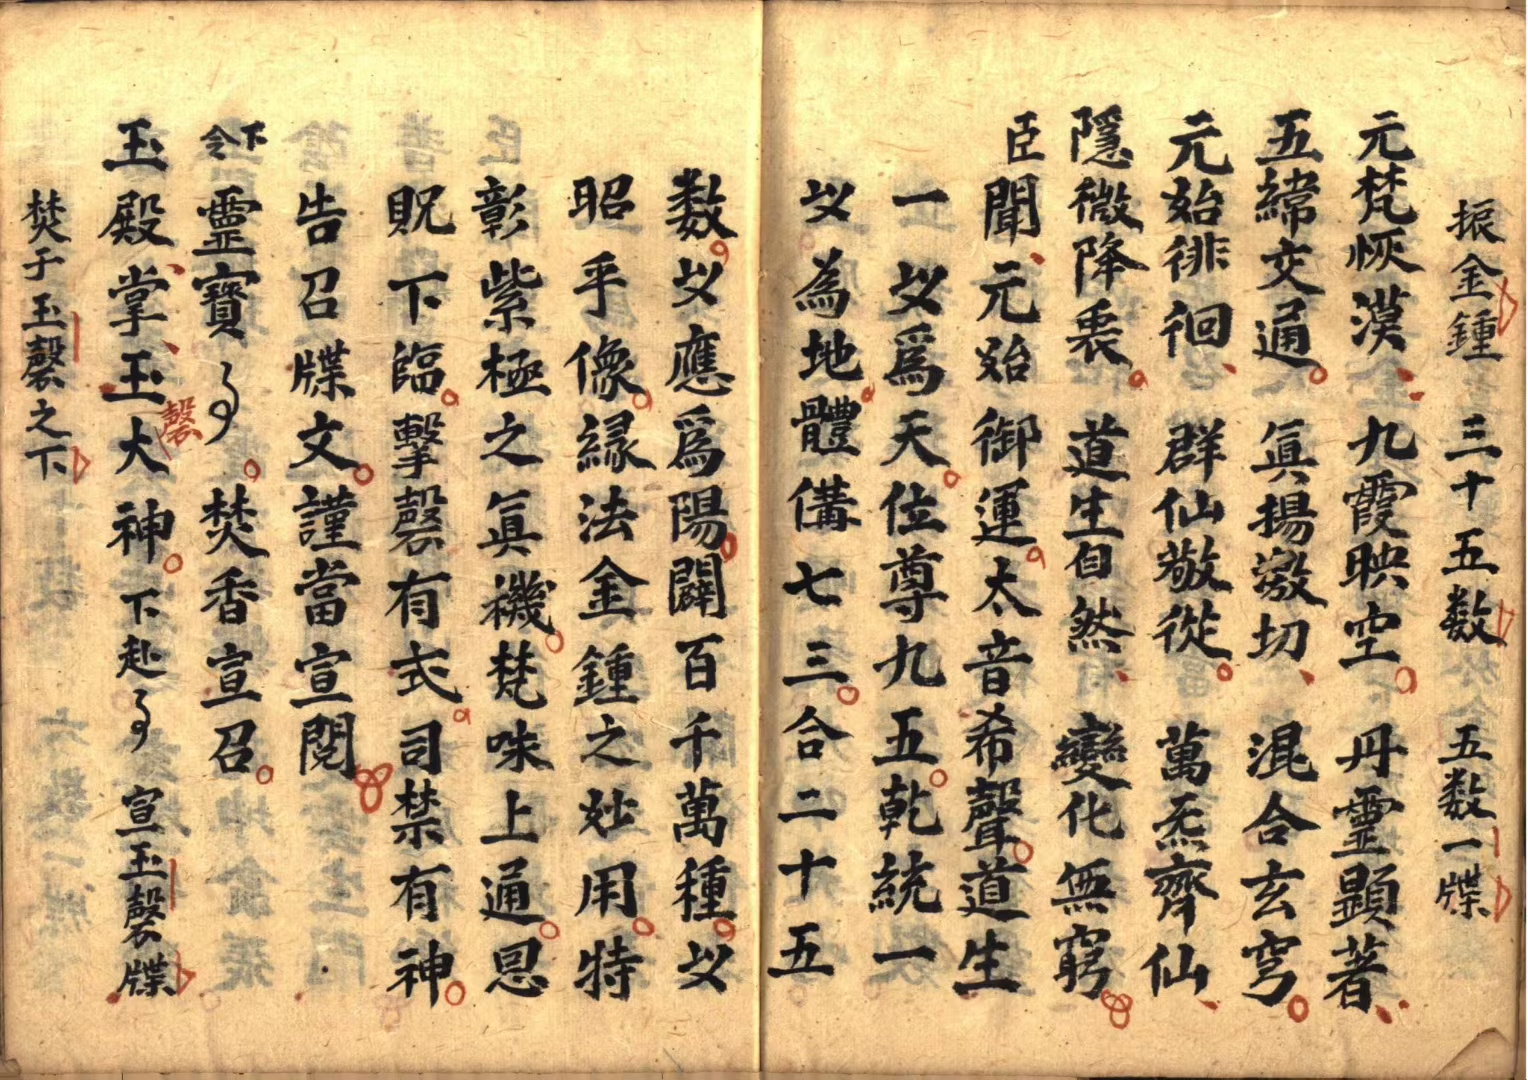 振金鍾 三十五数 五数一牒
元梵恢漠 九霞映空 丹靈顕著
五緯交通 眞揚激切 混合玄穹
元始徘徊 群仙敬從 萬炁齊仙
隱微降衷 道生自然 變化無窮
臣聞元始御運太音希聲道生
一㕥爲天位尊九五乾統一
㕥為地體備七三合二十五
数㕥應爲陽闢百千萬種㕥
昭乎像縁法金鍾之妙用特
彰紫極之眞機梵味上通恩
貺下臨擊磬有式司禁有神
告召牒文謹當宣閲
下令靈寶 焚香宣召
玉殿掌玉磬大神下赴 宣玉磬牒
焚于玉磬之下